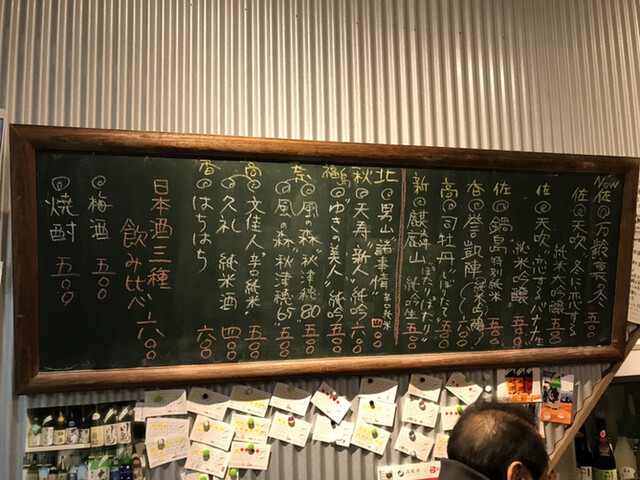 Now
佐◎万齢裏の冬 五〇〇
佐◎天吹"冬に恋する" 純米大吟醸 五五〇
佐◎天吹"恋するバナナ"生 純米吟醸 五五〇
佐◎鍋島特別純米 五五〇
香◎誉凱陣 純米吟醸 六〇〇
高◎司牡丹"しぼたて" 五〇〇
新◎麒麟山"ぽたりぽたり" 純吟生 五〇〇
北◎男山"諸事情"辛口純米 四〇〇
秋◎天寿"新人"純吟 六〇〇
◎ゆきの美人"純吟 五〇〇
奈◎風の森"秋津穂80" 五〇〇
◎風の森"秋津穂65" 五〇〇
高◎文佳人辛口純米" 五〇〇
◎久礼 純米酒 四〇〇
香◎はちはち 六〇〇
日本酒三種
飲み比べ 六〇〇
◎梅酒 五〇〇
◎焼酎 五〇〇